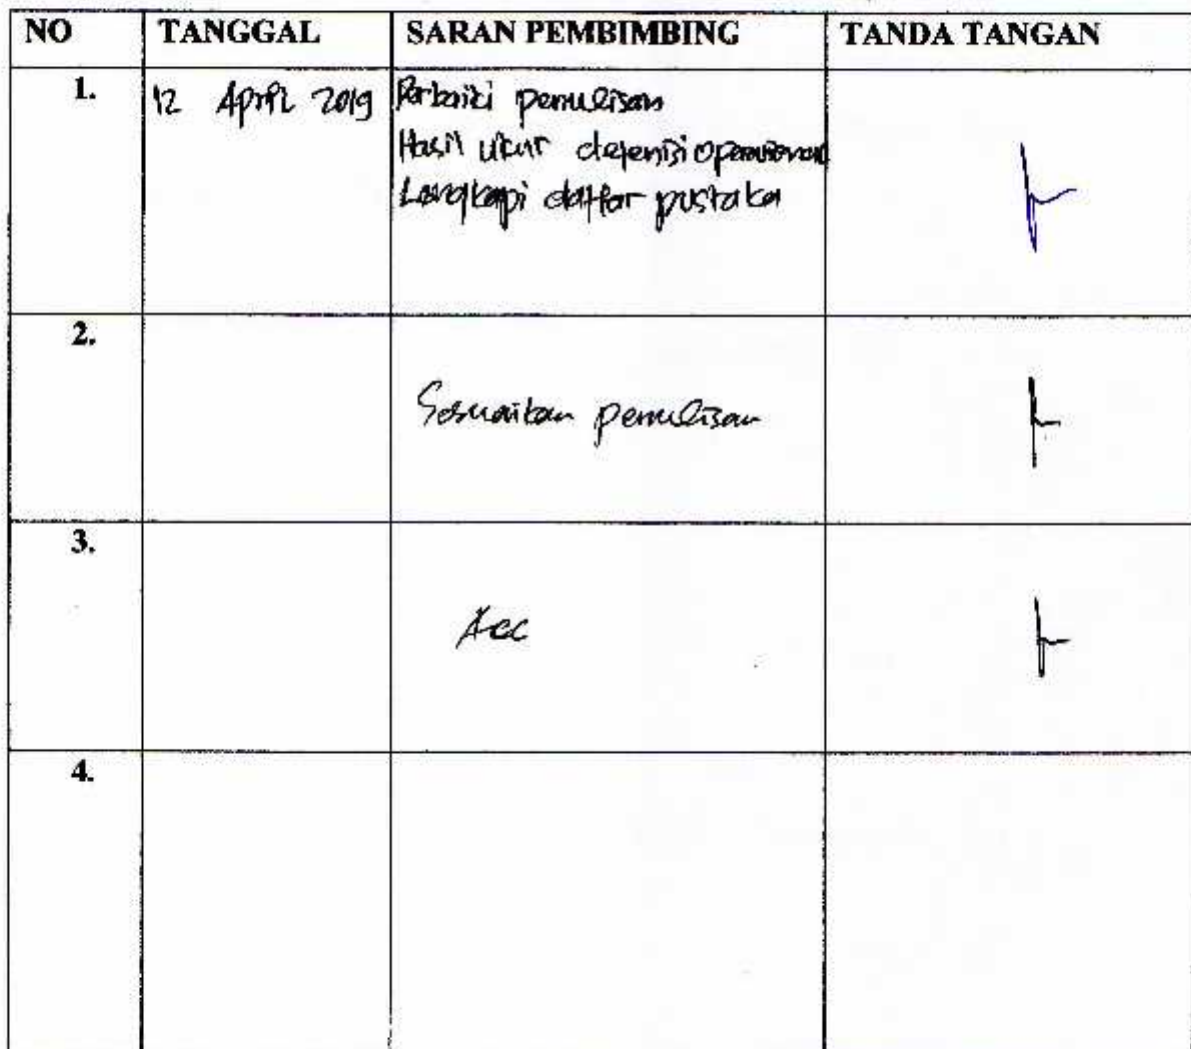 NO TANGGAL SARAN PEMBIMBING TANDA TANGAN
1. 12 April 2019 Perbaiki penulisan
Hasil ukur defenisi operasional
Lengkapi daftar pustaka
2.
Sesuaikan penulisan
3.
Acc
4.